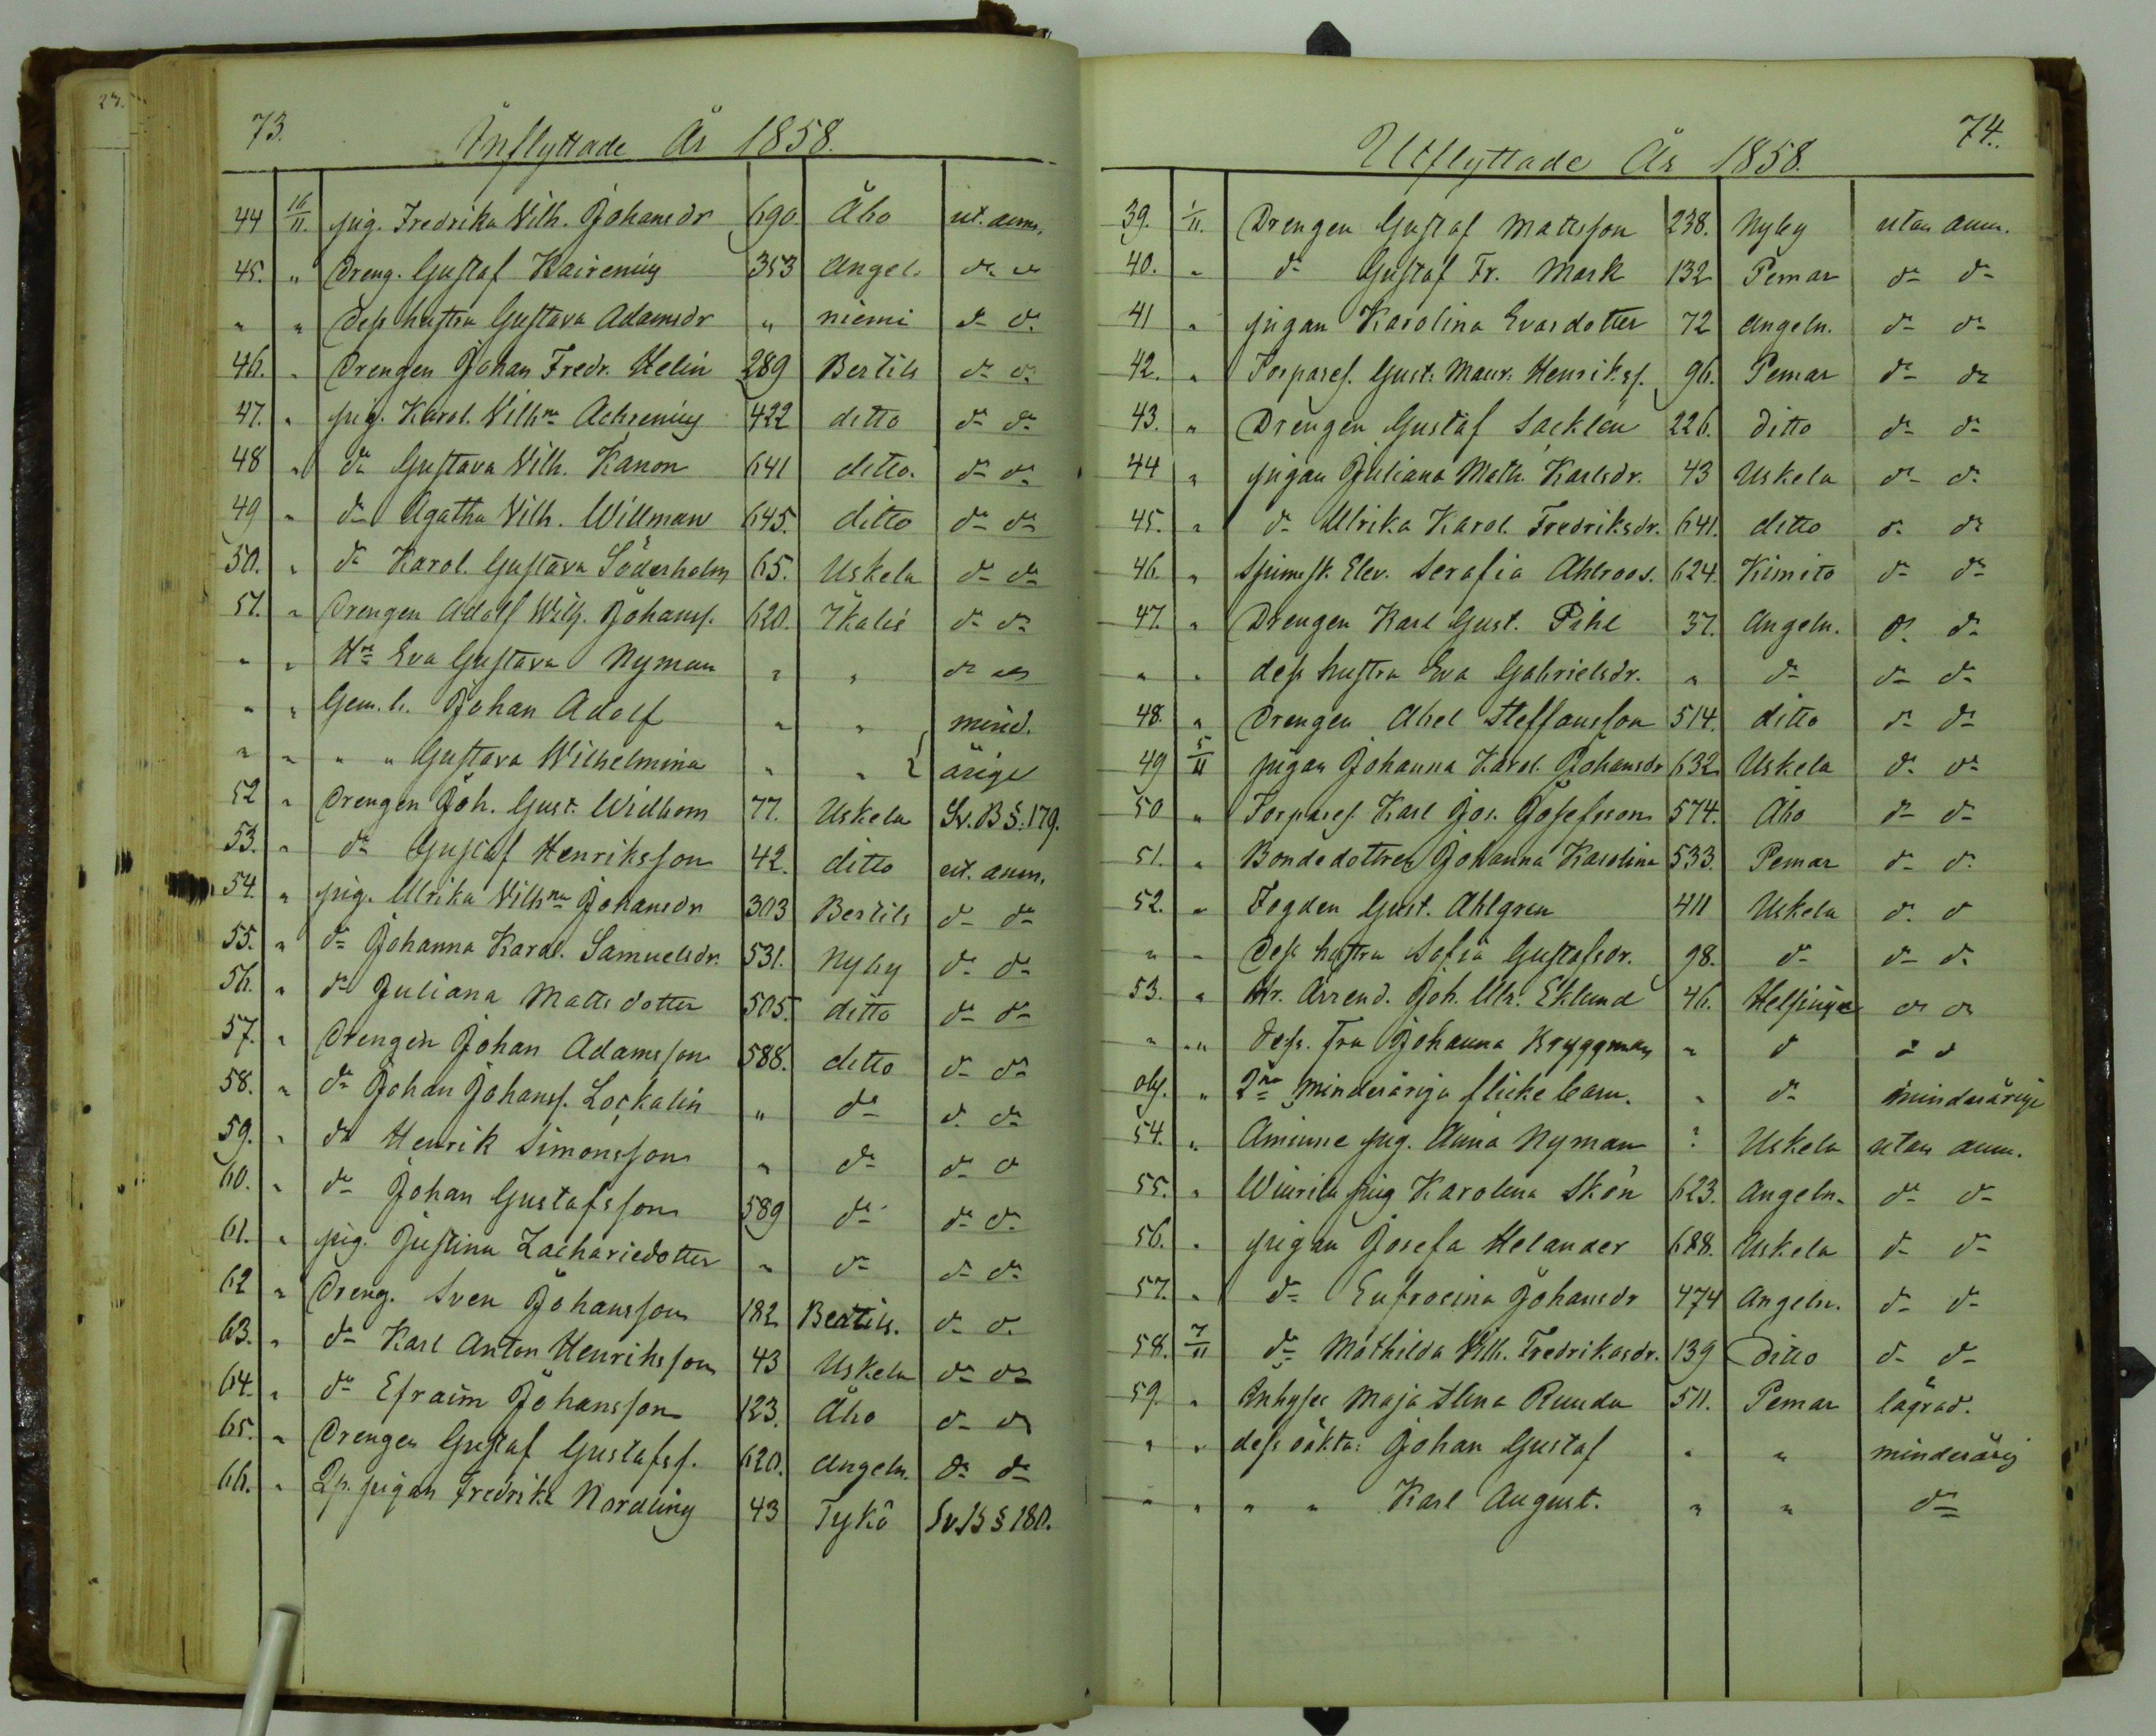 27.
73.
Inflyttade År 1858.
44 16/11. pig. Fredrika Vilh. Johansdr 690. Åbo ut. anm.
45. " Dreng. Gustaf Kairenius 353 Angel. do do
" " Dess hustru Gustava Adamsdr " niemi do do
46. " Drengen Johan Fredr. Helin 289 Bertils do do
47. " pig. Karol. Vilhna Achrenius 422 ditto do do
48 " do Gustava Vilh. Kanon 641 ditto. do do
49 " do Agatha Vilh. Willman 645. ditto do do
50. " do Karol. Gustava Söderholm 65. Uskela do do
51. " Drengen Adolf Wilh. Johanss. 620. Ikalis do do
" " Hu Eva Gustava Nyman " " do do
" " Gem. b. Johan Adolf " " mind.
" " " " Gustava Wilhelmina " " årige
52 " Drengen Joh. Gust. Widbom 77. Uskela Sv. B §. 179.
53. " do Gustaf Henriksson 42. ditto ut. anm.
54. " pig. Ulrika Vilhna Johansdr 303 Bertils do do
55. " do Johanna Karol. Samuelsdr. 531. Nyby do do
56. " do Juliana Mattsdotter 505. ditto do do
57. " Drengen Johan Adamsson 588. ditto do do
58. " do Johan Johanss. Lockalin " do do do
59. " do Henrik Simonsson " do do do
60. " do Johan Gustafsson 589 do do do
61. " pig. Justina Zachariedotter " do do do
62 " Dreng. Sven Johansson 182 Bertils. do do
63. " do Karl Anton Henriksson 43 Uskela do do
64. " do Efraim Johansson 123. Åbo do do
65. " Drengen Gustaf Gustafss. 620. Angeln. do do
66. " Lp. pigan Fredrika Nordling 43 Tykö Sv. B § 180.
74.
Utflyttade År 1858.
39. 1/11. Drengen Gustaf Mattsson 238. Nyby utan anm.
40. " do Gustaf Fr. Mark 132 Pemar do do
41 " pigan Karolina Evasdotter 72 Angeln. do do
42. " Torpares. Gust. Maur. Henrikss. 96. Pemar do do
43. " Drengen Gustaf Sacklén 226. ditto do do
44 " pigan Juliana Math. Karlsdr. 43 Uskela do do
45. " do Ulrika Karol. Fredriksdr. 641. ditto do do
46. " Elev. Serafia Ahlroos. 624. Kimito do do
47. " Drengen Karl Gust. Pihl 37. Angeln. do do
" " dess hustru Eva Gabrielsdr. " do do do
48. " Drengen Abel Steffansson 514. ditto do do
49 5/11 pigan Johanna Karol. Johansdr 632. Uskela do do
50 " Torpares. Karl Jos. Josefsson 574. Åbo do do
51. " Bondedottren Johanna Karolina 533. Pemar do do
52. " Fogden Gust. Ahlgren 411 Uskela do do
" " Dess hustru Sofia Gustafsdr. 98. do do do
53. " Hr. Arrend. Joh. Ulr. Eklund 46. Helsinge do do
" " Dess. Fru Johanna Bryggman " do do do
obs. " 2ne minderåriga flicke barn. " do minderårige
54. " Aminne pig. Anna Nyman ? Uskela utan anm.
55. " Wiurila pig Karolina Skön 623. Angeln. do do
56. " pigan Josefa Helander 688. Uskela do do
57. " do Eufrosina Johansdr 474 Angeln. do do
58. 7/11 do Mathilda Vilh. Fredrikasdr. 139 Ditto do do
59. " Inhyses Maja Stina Ruuda 511. Pemar lagrad.
" " dess oäkta: Johan Gustaf " " minderårig
" " " " Karl August. " " do